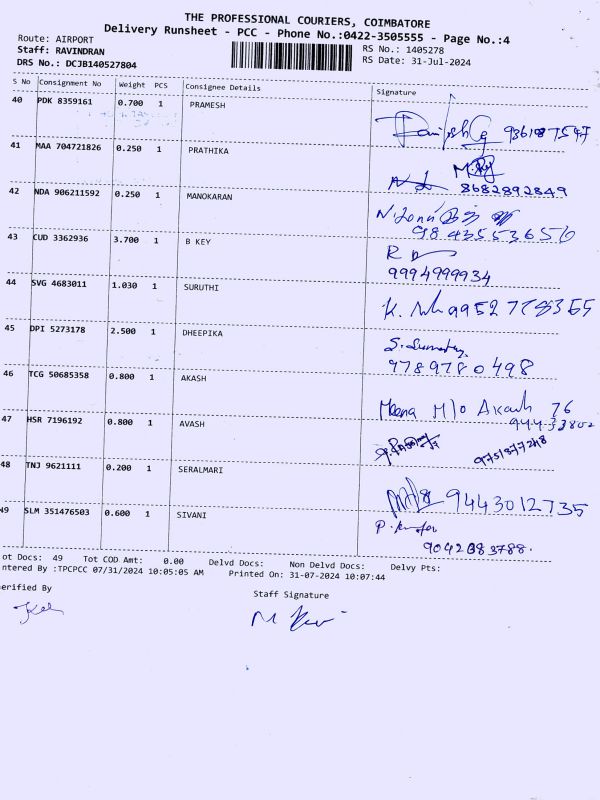 THE PROFESSIONAL COURIERS, COIMBATORE
Delivery Runsheet - PCC - Phone No.:0422-3505555 - Page No.:4
Route: AIRPORT RS No.: 1405278
Staff: RAVINDRAN RS Date: 31-Jul-2024
DRS No.: DCJB140527804
S No Consignment No Weight PCS Consignee Details Signature
40 PDK 8359161 0.700 1 PRAMESH
41 MAA 704721826 0.250 1 PRATHIKA
8682892849
42 NDA 906211592 0.250 1 MANOKARAN
9843553656
43 CUD 3362936 3.700 1 B KEY
9994999934
44 SVG 4683011 1.030 1 SURUTHI
45 DPI 5273178 2.500 1 DHEEPIKA
9789780498
46 TCG 50685358 0.800 1 AKASH Meena M/o Akash 76
47 HSR 7196192 0.800 1 AVASH
48 TNJ 9621111 0.200 1 SERALMARI 9443012735
49 SLM 351476503 0.600 1 SIVANI
ot Docs: 49 Tot COD Amt: 0.00 Delvd Docs: Non Delvd Docs: Delvy Pts:
ntered By :TPCPCC 07/31/2024 10:05:05 AM Printed On: 31-07-2024 10:07:44
erified By Staff Signature